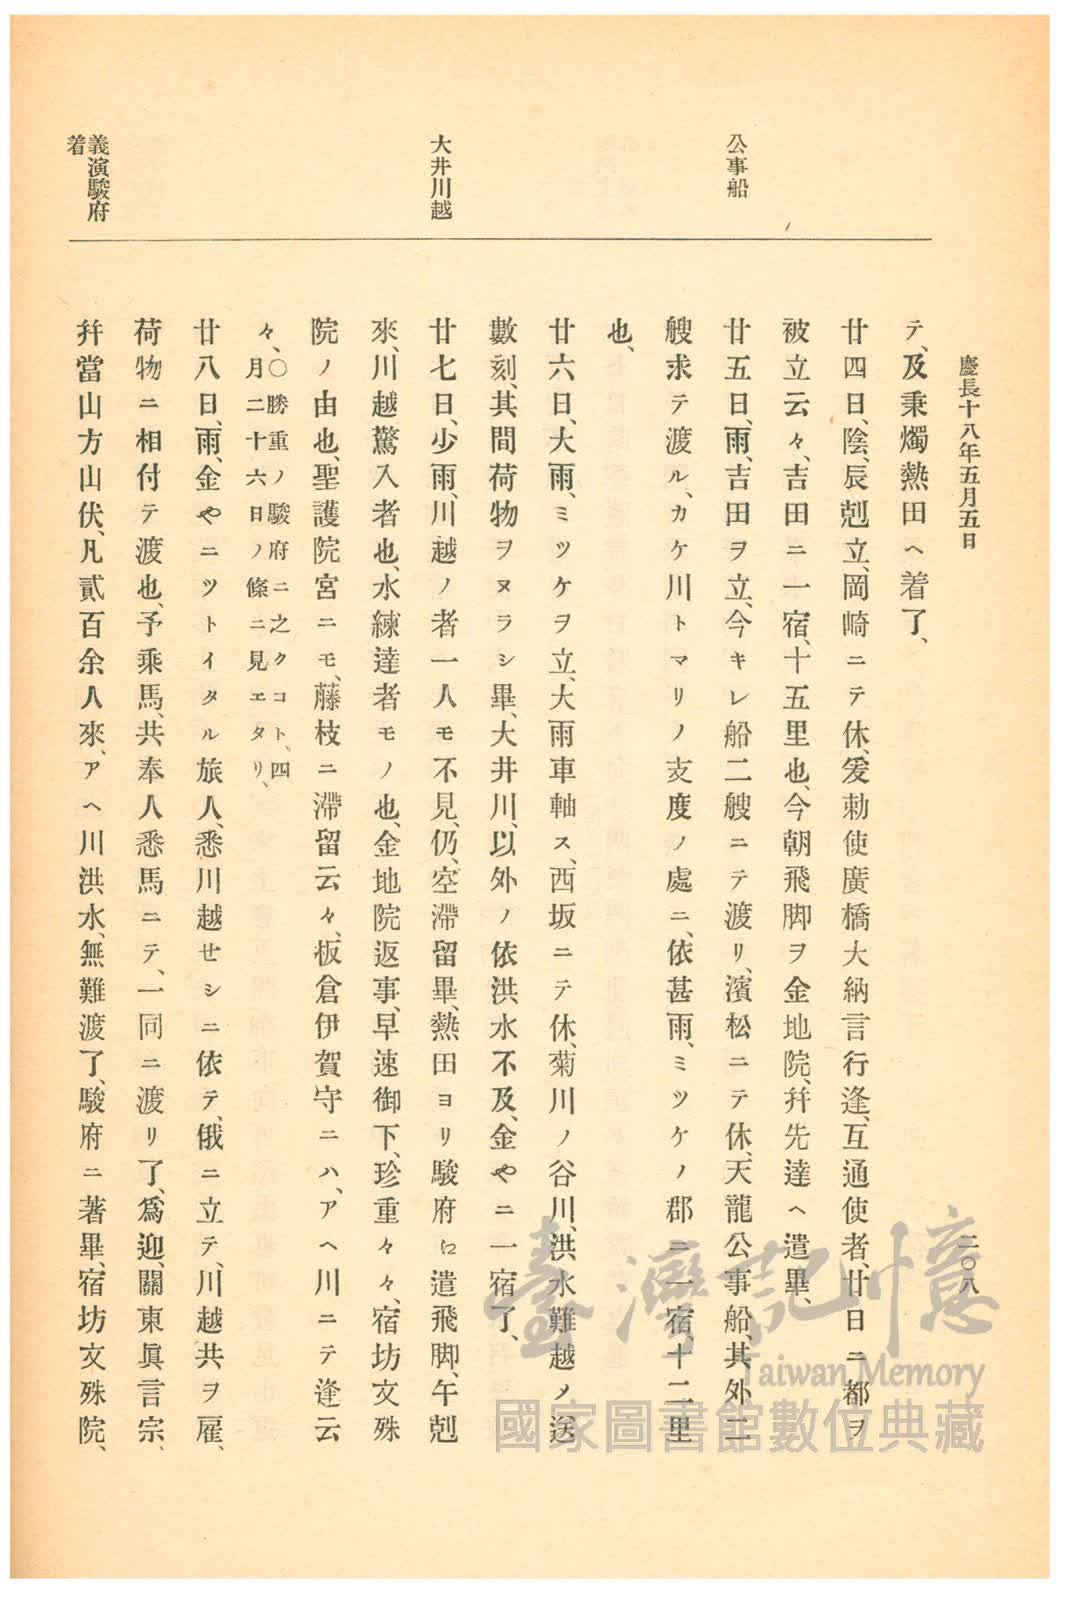 慶長十八年五月五日
二〇八
テ、及秉燭熱田ヘ着了、
廿四日、陰、辰剋立、岡崎ニテ休、爰勅使廣橋大納言行逢、互通使者、廿日ニ都ヲ
被立云々、吉田ニ一宿、十五里也、今朝飛脚ヲ金地院、幷先達ヘ遣畢、
公事船
廿五日、雨、吉田ヲ立、今キレ船二艘ニテ渡リ、濱松ニテ休、天龍公事船、其外二
艘求テ渡ル、カケ川トマリノ支度ノ處ニ、依甚雨、ミツケノ郡ニ一宿、十二里
也、
廿六日、大雨、ミツケヲ立、大雨車軸ス、西坂ニテ休、菊川ノ谷川、洪水難越ノ送
數刻、其間荷物ヲヌラシ畢、大井川、以外ノ依洪水不及、金やニ一宿了、
大井川越
廿七日、少雨、川越ノ者一人モ不見、仍、空滯留畢、熱田ヨリ駿府ニ遣飛脚、午剋
來、川越驚入者也、水練達者モノ也、金地院返事、早速御下、珍重々々、宿坊文殊
院ノ由也、聖護院宮ニモ、藤枝ニ滯留云々、板倉伊賀守ニハ、アヘ川ニテ逢云
々、〇勝重ノ駿府ニ之クコト、四
月二十六日ノ條ニ見エタリ、
廿八日、雨、金やニツトイタル旅人、悉川越せシニ依テ、俄ニ立テ、川越共ヲ雇、
荷物ニ相付テ渡也、予乘馬、共奉人悉馬ニテ、一同ニ渡リ了、爲迎、關東眞言宗、
義演駿府
着
幷當山方山伏、凡貳百余人來、アヘ川洪水、無難渡了、駿府ニ著畢、宿坊文殊院、
臺灣記憶
Taiwan Memory
國家圖書館數位典藏